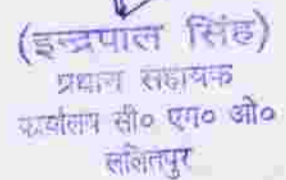 (इन्द्रपाल सिंह)
प्रधान सहायक
कार्यालय सी० एम० ओ०
ललितपुर